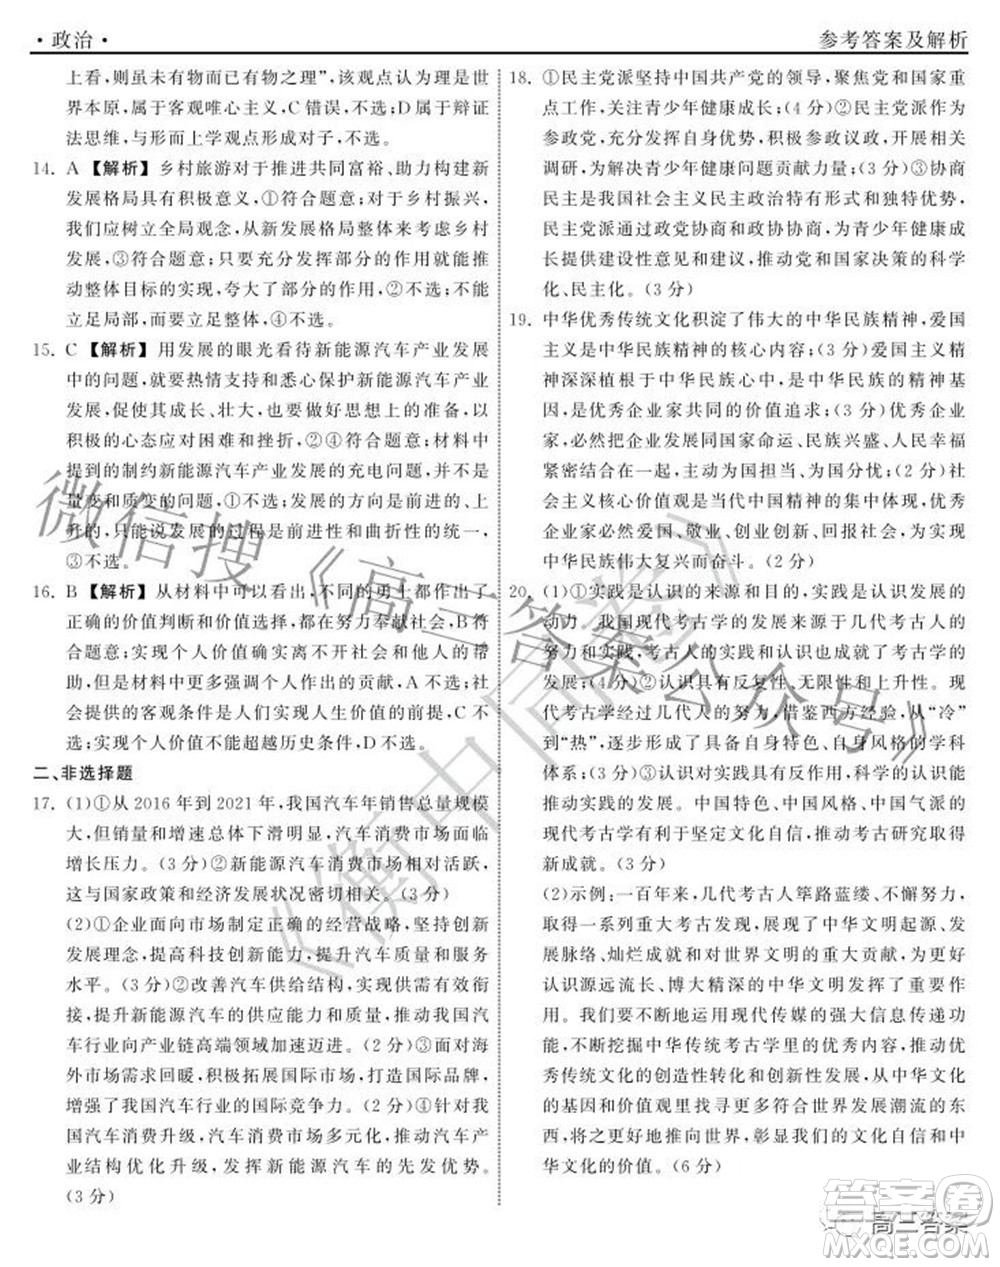 ·政治·
参考答案及解析
上看,则虽未有物而已有物之理”,该观点是理是世
界本原,属于客观唯心主义,C错误,不选;D属于辩证
法思维,与形而上学观点形成对子,不选。
14. A 【解析】乡村旅游对于推进共同富裕、助力构建新
发展格局具有积极意义,①符合题意;对于乡村振兴,
我们应树立全局观念,从新发展格局整体来考虑乡村
发展,③符合题意;只要充分发挥部分的作用,就能推
动整体目标的实现,夸大了部分的作用,②不选;不能
立足局部,而要立足整体,④不选。
15. C 【解析】用发展的眼光看待新能源汽车产业发展
中的问题,就要热情支持和悉心保护新能源汽车产业
发展,促使其成长、壮大,也要做好思想上的准备,以
积极的心态应对困难和挫折,②④符合题意;材料中
提到的制约新能源汽车产业发展的充电问题,并不是
量变和质变的问题,①不选;发展的方向是前进的、上
升的,发展的过程是前进性和曲折性的统一,
③不选。
16. B 【解析】从材料中可以看出,不同的勇士都作出了
正确的价值判断和价值选择,都在奉献社会,B符
合题意;实现个人价值确实离不开社会和他人的帮
助,但是材料中更多强调个人作出的贡献,A不选;社
会提供的客观条件是人们实现人生价值的前提,C不
选;实现个人价值不能超越历史条件,D不选。
二、非选择题
17. (1)①从2016年到2021年,我国汽车年销售总量规模
大,但销量和增速总体下滑明显,汽车消费市场面临
增长压力。(3分)②新能源汽车消费市场相对活跃,
这与国家政策和经济发展状况密切相关。(3分)
(2)①企业面向市场制定正确的经营战略,坚持创新
发展理念,提高科技创新能力,提升汽车产品及服务
水平。(3分)②改善汽车供给结构,持续增加有效供
给,提升新能源汽车的供应能力和供应质量,推动汽
车行业向产业链高端领域加速迈进。(2分)③面对海
外市场需求回暖,积极拓展国际市场,打造国际品牌,
增强了我国汽车行业的国际竞争力。(2分)④针对我
国汽车消费升级、消费市场多元化,推动汽车产
业结构优化升级,发挥新能源汽车的先发优势。
(3分)
18. ①民主党派坚持中国共产党的领导,聚焦党和国家重
点工作,关注青少年健康成长;(4分)②民主党派作为
参政党,充分发挥自身优势,积极参政议政,开展相关
调研,为解决青少年健康问题贡献力量;(3分)③协商
民主是我国社会主义民主政治特有形式和独特优势,
民主党派通过政党协商和政协协商,为青少年健康成
长提供建设性意见和建议,推动党和国家决策的科学
化、民主化。(3分)
19. 中华优秀传统文化积淀了伟大的中华民族精神,爱国
主义是中华民族精神的核心内容;(3分)爱国主义精
神深深植根于中华民族心中,是中华民族的精神基
因,是优秀企业家共同的价值追求;(3分)优秀企业
家,必然把企业发展同国家命运、民族复兴、人民幸福
紧密结合在一起,主动为国担当、为国分忧;(2分)社
会主义核心价值观是当代中国精神的集中体现,优秀
企业家必然爱国、敬业、创新、回报社会,为实现
中华民族伟大复兴而奋斗。(2分)
20. (1)①实践是认识的来源和目的,实践是认识发展的
动力。我国现代考古学的发展来源于几代考古人的
实践。(4分)②认识具有反复性、无限性和上升性。现
代考古学经过几代人的努力,借鉴西方经验,从“冷”
到“热”,逐渐发展出具有自身特色、自身风格的学科
体系;(3分)③认识对实践具有反作用,科学的认识能
推动实践的发展。中国特色、中国风格、中国气派的
现代考古学有利于坚定文化自信,推动考古研究取得
新成就。(3分)
(2)示例:一百年来,几代考古人筚路蓝缕、不懈努力,
取得一系列重大考古发现,展现了中华文明起源、
发展脉络、灿烂成就和对世界文明的重大贡献,为更好
认识源远流长、博大精深的中华文明发挥了重要作
用。我们要不断推动运用现代传媒的大众传播功
能,不断挖掘中华传统考古学里的优秀内容,推动优
秀传统文化的创造性转化和创新性发展,把中华文化
的基因和价值观变成更加符合世界发展潮流的东
西,将之更好地推向世界,彰显我们的文化自信和中
华文化的价值。(6分)
微信搜《高三答案公众号》
《衡中同卷》
答案圈
高三答案
MXQE.COM